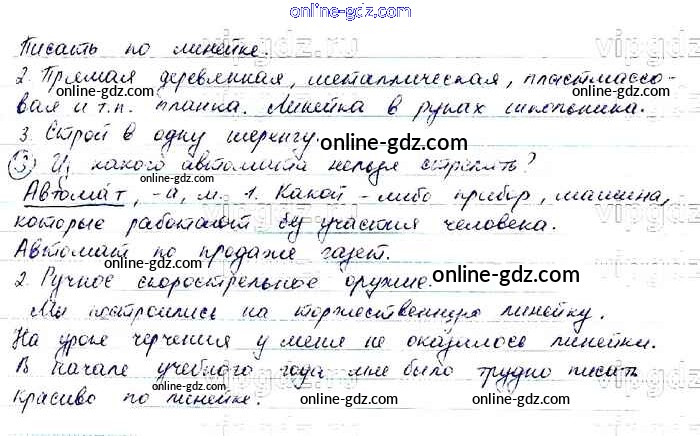 online-gdz.com
Писать по линейке.
2. Прямая деревянная, металлическая, пластмассо-
вая и т.п. планка. Линейка в руках школьника.
3. Строй в одну шеренгу.
3) Из какого автомата нельзя стрелять?
Автома́т, -а, м. 1. Какой-либо прибор, машина,
которые работают без участия человека.
Автомат по продаже газет.
2. Ручное скорострельное оружие.
Мы построились на торжественную линейку.
На уроке черчения у меня не оказалось линейки.
В начале учебного года мне было трудно писать
красиво по линейке.
online-gdz.com
online-gdz.com
online-gdz.com
online-gdz.com
online-gdz.com
online-gdz.com
online-gdz.com
online-gdz.com
online-gdz.com
vipgdz.ru
vipgdz.ru
vipgdz.ru